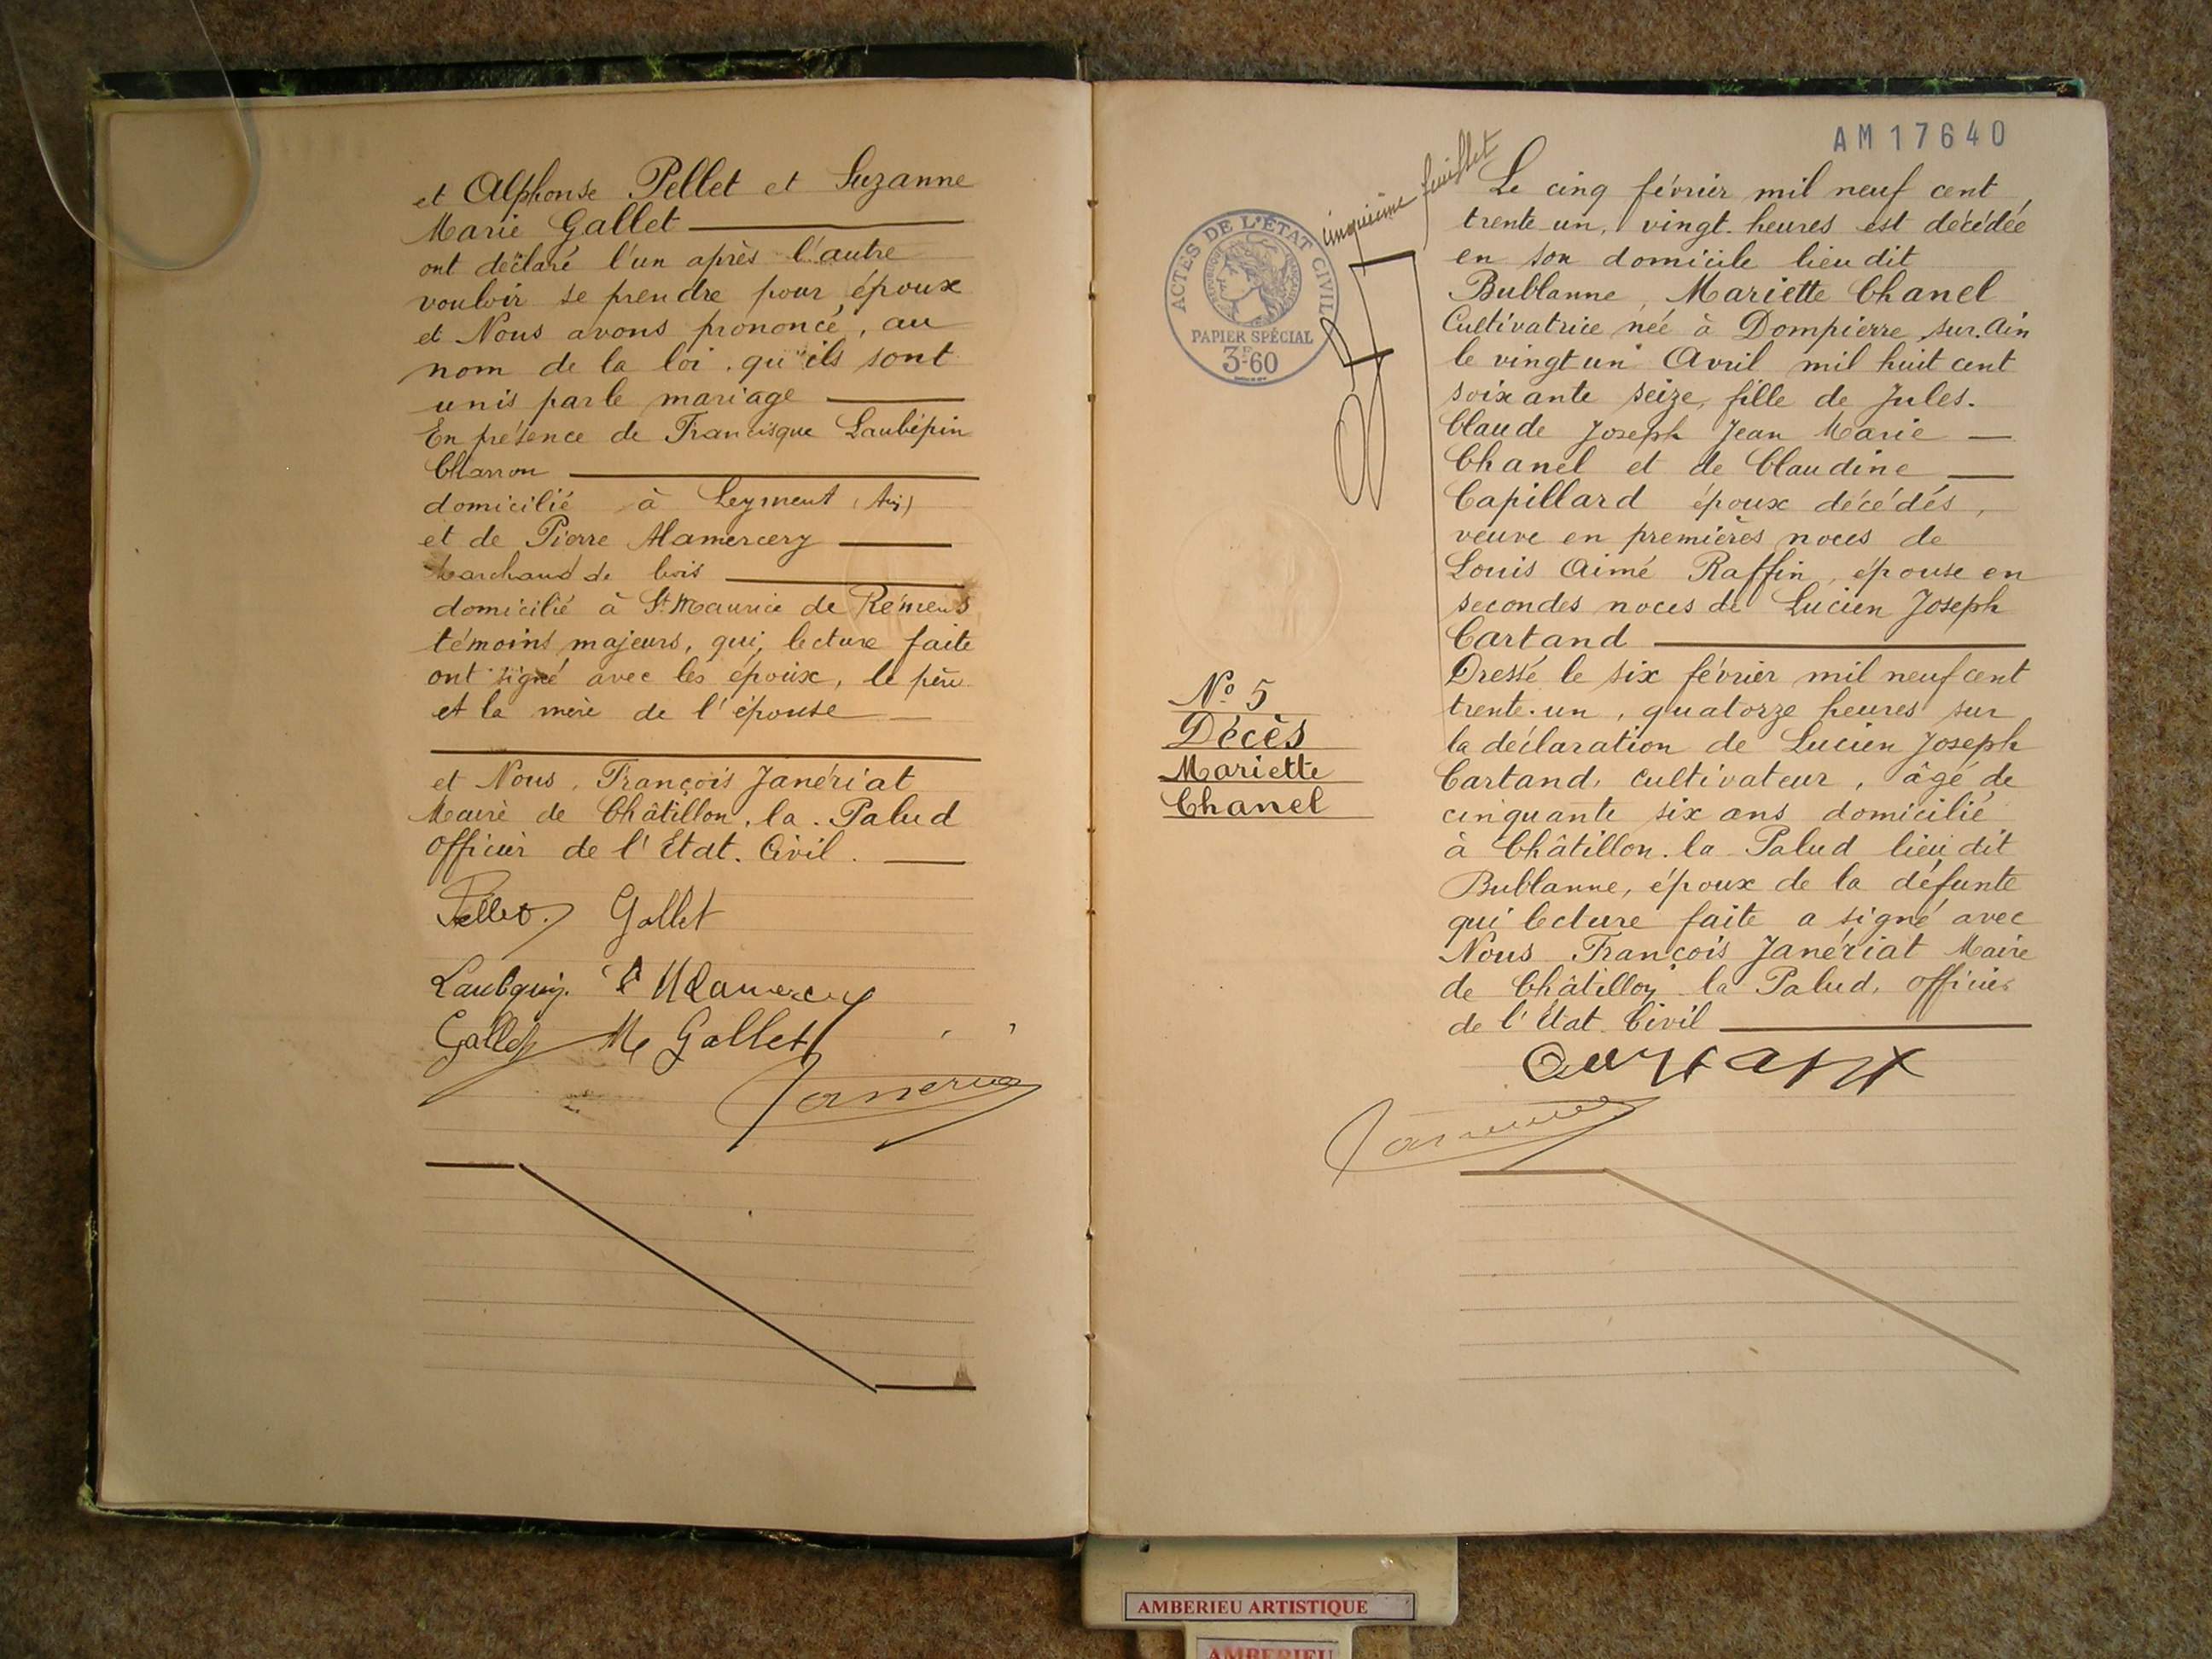 et Alphonse Pellet et Suzanne
Marie Gallet
ont déclaré l'un après l'autre
vouloir se prendre pour époux
et Nous avons prononcé, au
nom de la loi, qu'ils sont
unis par le mariage
En présence de Francisque Laubépin
Charron
domicilié à Leyment (Ain)
et de Pierre Mamercery
Marchand de bois
domicilié à St Maurice de Rémens
témoins majeurs, qui, lecture faite
ont signé avec les époux, le père
et la mère de l'épouse
et Nous, François Janériat
Maire de Châtillon. la. Palud
officier de l'Etat. Civil.
Pellet. Gallet
Gallet Me Gallet
AM17640
cinquième feuillet
ACTES DE L'ÉTAT CIVIL
PAPIER SPÉCIAL
3F60
Le cinq février mil neuf cent
trente un, vingt heures est décédée
en son domicile lieu dit
Bublanne, Mariette Chanel
Cultivatrice née à Dompierre sur. Ain
le vingt un Avril mil huit cent
soixante seize, fille de Jules.
Claude Joseph Jean Marie
Chanel et de Claudine
Capillard époux décédés,
veuve en premières noces de
Louis Aimé Raffin, épouse en
secondes noces de Lucien Joseph
Cartand
Dressé le six février mil neuf cent
trente. un, quatorze heures sur
la déclaration de Lucien Joseph
Cartand, cultivateur, âgé de
cinquante six ans domicilié
à Châtillon. la Palud lieu dit
Bublanne, époux de la défunte
qui lecture faite a signé avec
Nous François Janériat Maire
de Châtillon la Palud, officier
de l'Etat. Civil
No 5
Décès
Mariette
Chanel
AMBERIEU ARTISTIQUE
AMBERIEU